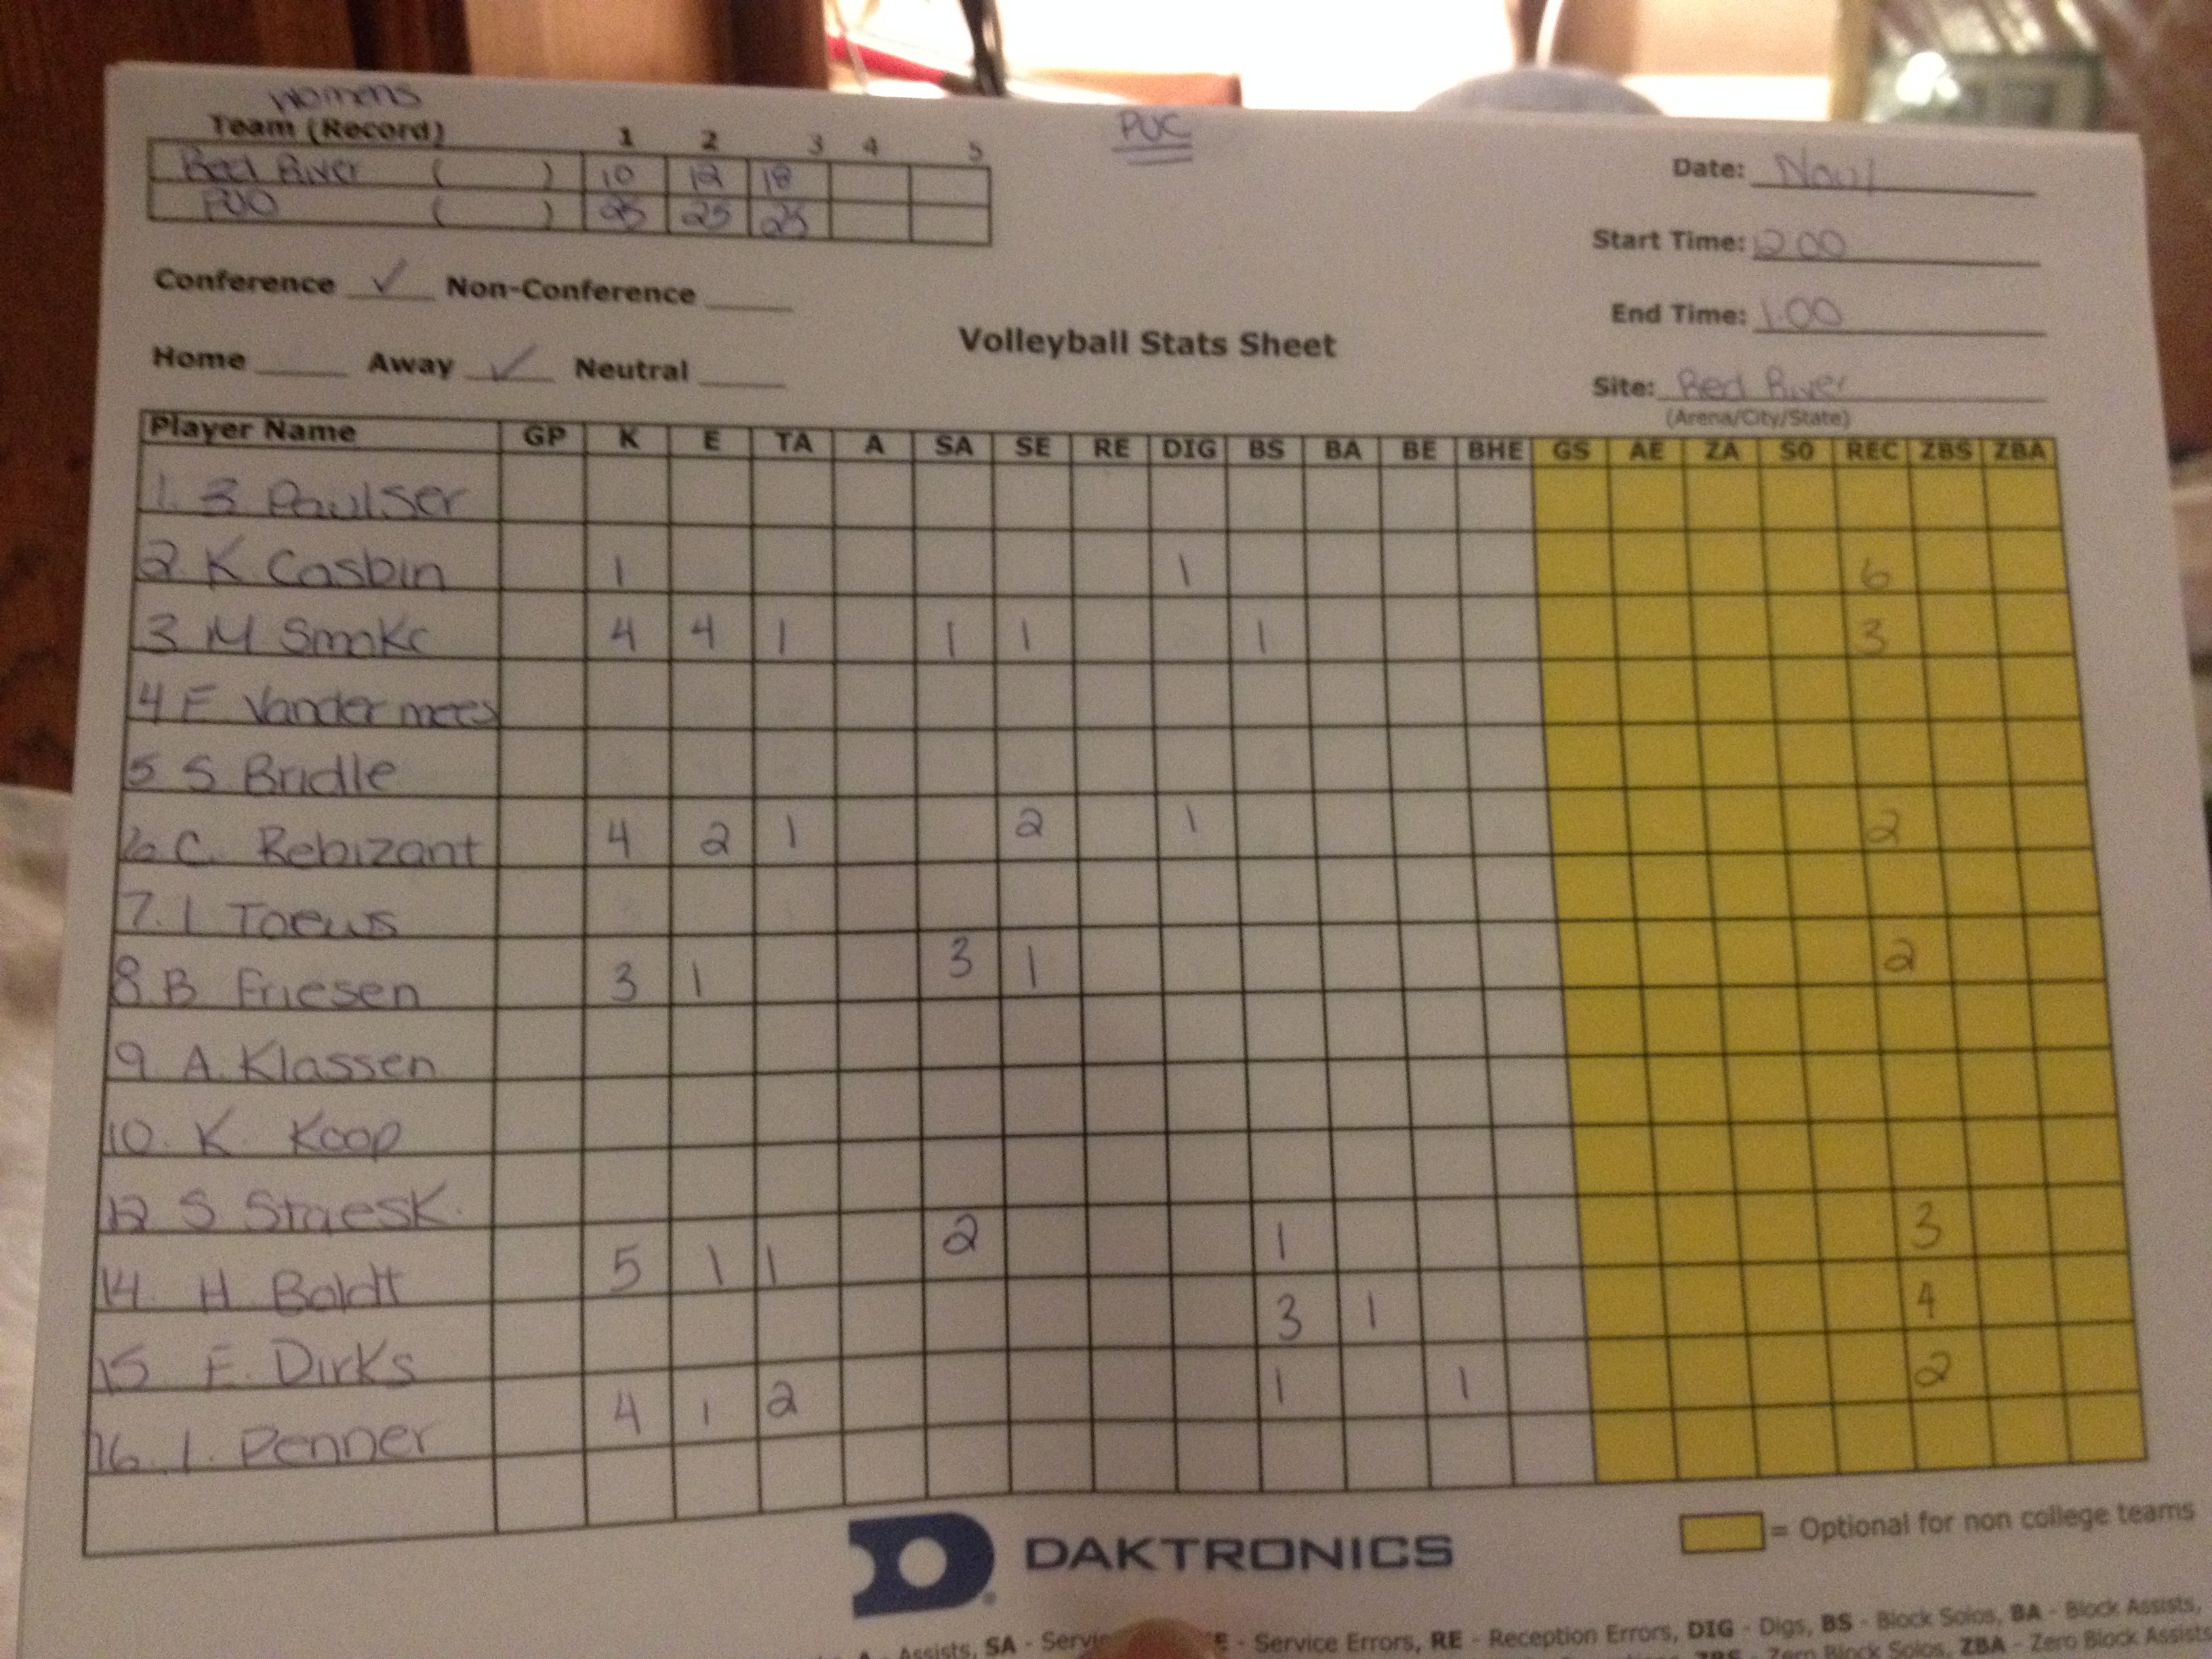 Womens
Team (Record) 1 2 3 4 5
Red River ( ) 10 12 18
PUC ( ) 25 25 25
PUC
Date: Nov 1
Start Time: 12 00
End Time: 1.00
Site: Red River
(Arena/City/State)
Conference ✓ Non-Conference
Home Away ✓ Neutral
Volleyball Stats Sheet
Player Name GP K E TA A SA SE RE DIG BS BA BE BHE GS AE ZA SO REC ZBS ZBA
1. B Paulser
2. K Casbin 1 1 6
3 M Smoke 4 4 1 1 1 1 3
4 E Vandermees
5 S Bridle
6 C. Rebizant 4 2 1 2 1 2
7. I Toews
8. B Friesen 3 1 3 1 2
9. A. Klassen
10. K. Koop
12 S Staesk.
14. H. Boldt 5 1 1 2 1 3
15 E. Dirks 3 1 4
16. I. Penner 4 1 2 1 1 2
DAKTRONICS
= Optional for non college teams
Assists, SA - Service - Service Errors, RE - Reception Errors, DIG - Digs, BS - Block Solos, BA - Block Assists,
Zero Block Solos, ZBA - Zero Block Assists